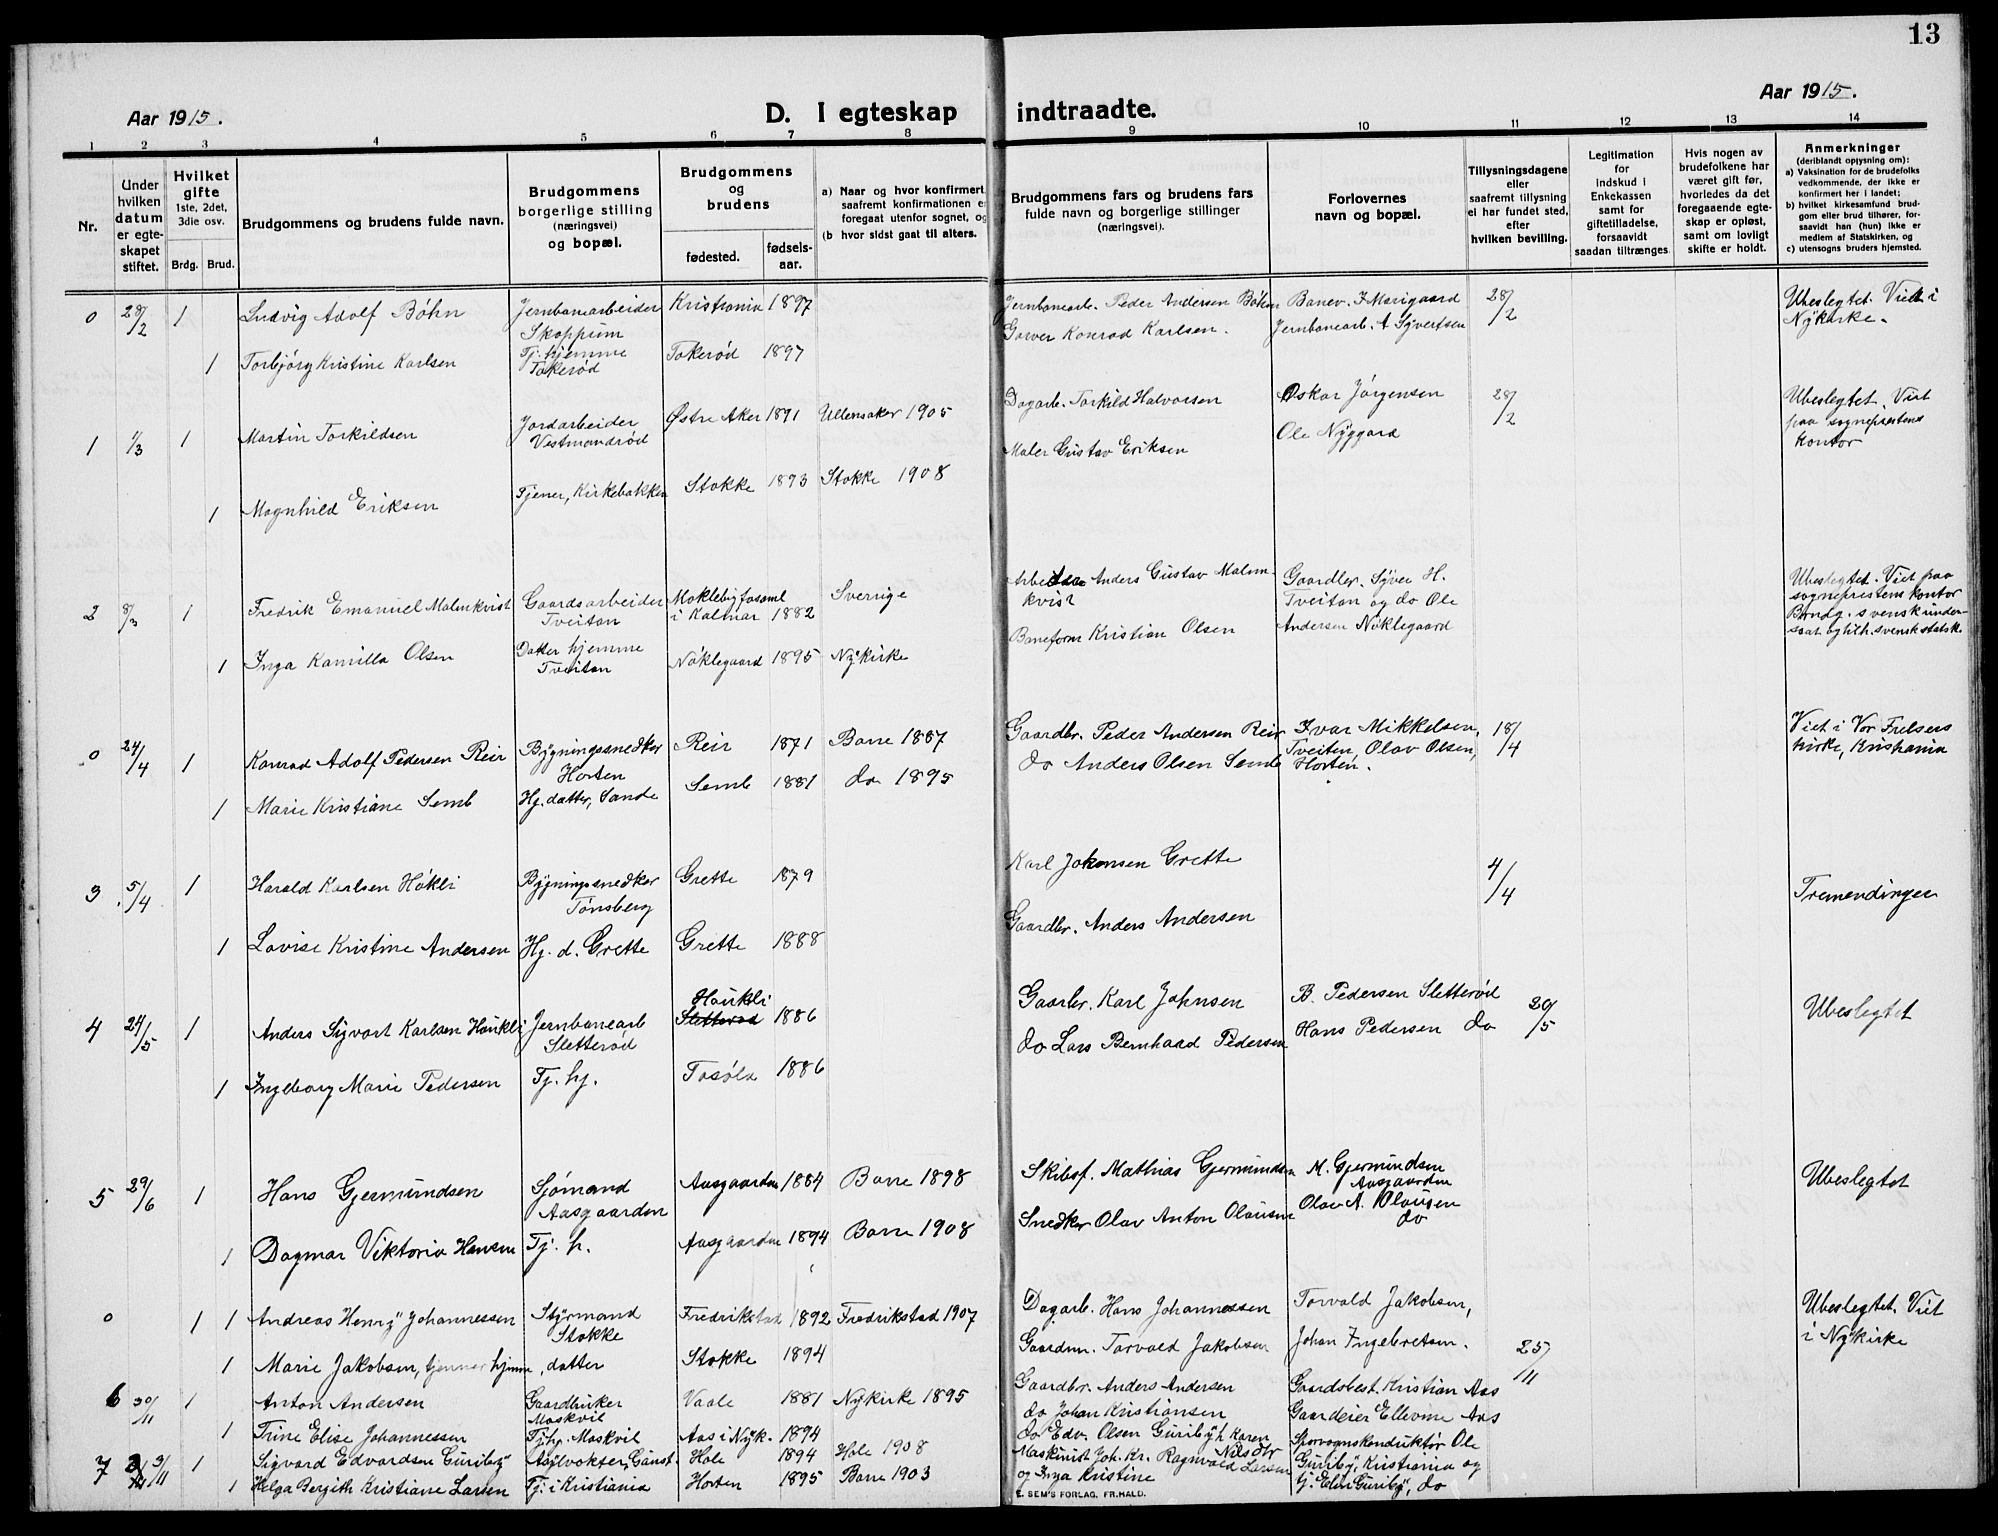 13
Aar 1915.
D. I egteskap indtraadte.
Aar 1915.
1 2 3 4 5 6 7 8 9 10 11 12 13 14
Nr.
Under hvilken datum er egte-skapet stiftet.
Hvilket gifte 1ste, 2det, 3die osv.
Brdg. Brud.
Brudgommens og brudens fulde navn.
Brudgommens borgerlige stilling (næringsvei) og bopæl.
Brudgommens og brudens
fødested. fødsels-aar.
a) Naar og hvor konfirmert,
saafremt konfirmationen e
foregaat utenfor sognet, og
(b hvor sidst gaat til alters.
Brudgommens fars og brudens fars
fulde navn og borgerlige stillinger
(næringsvei).
Forlovernes
navn og bopæl.
Tillysningsdagene
eller
saafremt tillysning
ei har fundet sted,
efter
hvilken bevilling.
Legitimation
for
indskud i
Enkekassen
samt for
giftetilladelse,
forsaavidt
saadan tiltrænges
Hvis nogen av
brudefolkene har
været gift før,
hvorledes da det
foregaaende egte-
skap er opløst,
samt om lovligt
skifte er holdt.
Anmerkninger
(deriblandt opjysning om):
a) Vaksination for de brudefolks
vedkommende, der ikke er
konfirmert her i landet;
b) hvilket kirkesamfund brud-
gom eller brud tilhører, for-
saavidt han (hun) ikke er
medlem af Statskirken, og
c) utensogns bruders hjemsted.
0 28/2 1 Ludvig Adolf Bøhn Jernbanearbeider Kristiania 1897 Jernbanearb. Peder Andersen Bøhn Banev. I. Morigaard 28/2 Ubeslegtet. Viet i
Skoppum Garver Konrad Karlsen. Jernbanearb. A Syvertsen Nykirke.
1 Torbjørg Kristine Karlsen Tj. hjemme Takerød 1897
Takerød
1 1/3 1 Martin Torkildsen Jordarbeider Østre Aker 1891 Ullensaker 1905 Dagarb. Torkild Halvorsen Oskar Jørgensen 28/2 Ubeslegtet. Viet
Vestmandrød Maler Gustav Eriksen Ole Nyggard paa sogneprestens
kontor
1 Magnhild Eriksen Tjener, Kirkebakken Stokke 1893 Stokke 1908
2 8/3 1 Fredrik Emanuel Malmkvist Gaardsarbeider i Kalmar 1882 Sverige Anders Gustav Malm- Gaardbr. Syver H. Ubeslegtet. Viet paa
Tveitan kvist Tveitan og do Ole sogneprestens kontor
Baneform Kristian Olsen Andersen Nøklegaard Brudg. svensk under-
saat og tilh. svensk statsk.
1 Inga Kamilla Olsen Datter hjemme Nøklegaard 1895 Nykirke
Tveitan
0 24/4 1 Konrad Adolf Pedersen Reir Bygningssnedker Reir 1871 Borre 1887 Gaardbr. Peder Andersen Reir Ivar Mikkelsen, 18/4 Viet i Vor Frelsers
Horten do Anders Olsen Semb Tveiten, Olav Olsen, kirke, Kristiania
Horten.
1 Marie Kristiane Semb Hj. datter, Sande Semb 1881 do 1895
3 5/4 1 Harald Karlsen Høkli Bygningssnedker Grette 1879 Karl Johansen Grette 4/4 Tremendinger
Tønsberg
1 Lovise Kristine Andersen Hj. d. Grette Grette 1888 Gaardbr. Anders Andersen
4 24/5 1 Anders Sigvart Karlsen Haukli Jernbanearb Haukli 1886 Gaarbr. Karl Johnsen B. Pedersen Sletterød 20/5 Ubeslegtet
Sletterød do Lars Bernhard Pedersen Hans Pedersen do
1 Ingeborg Marie Pedersen Tj. hj. 1886
5 29/6 1 Hans Gjermundsen Sjømand Aasgaarden 1884 Borre 1898 Skibsf. Mathias Gjermundsen M. Gjermundsen Ubeslegtet
Aasgaarden Aasgaarden
Snedker Olav Anton Olausen Olav A. Olausen
do
1 Dagmar Viktoria Hansen Tj. h. Aasgaarden 1894 Borre 1908
0 1 1 Andreas Henry Johannessen Styrmand Fredrikstad 1892 Fredrikstad 1907 Dagarb. Hans Johannessen Torvald Jakobsen, Ubeslegtet. Viet
Stokke i Nykirke
1 Marie Jakobsen, tjener hjemme, datter Stokke 1894 Gaardm. Torvald Jakobsen Johan Ingebretsen. 25/11
6 30/11 1 Anton Andersen Gaardbruker Vaale 1881 Nykirk 1895 Gaardbr. Anders Andersen Gaardsbest. Kristian Aas
Moskvil do Johan Kristiansen Gaardeier Ellevine Aas
1 Trine Elise Johannessen Tj. hj. Moskvil Aas i Nyk. 1894
7 3/11 1 Sigvard Edvardsen Guriby Asylvokter, Gaust. Hole 1894 Hole 1908 do Edv. Olsen Guriby h Karen Nilsdtr Sporvognskonduktør Ole
1 Helga Bergith Kristiane Larsen Tj. i Kristiania Horten 1895 Borre 1903 Maskinist Joh. Kr. Ragnvald Larsen Guriby, Kristiania og
og Inga Kristine tj. Elen Guriby, do
E. SEM'S FORLAG. FR.HALD.